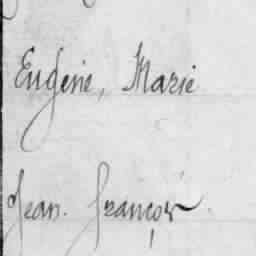 Eugène, Marie
Jean. François